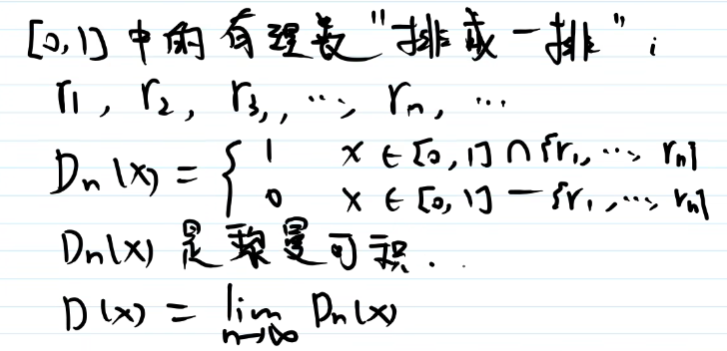 [0,1] 中的有理数"排成一排"：
r₁, r₂, r₃, ..., rₙ, ...
Dₙ(x) = { 1 x ∈ [0,1] ∩ {r₁, ..., rₙ}
0 x ∈ [0,1] - {r₁, ..., rₙ}
Dₙ(x) 是黎曼可积.
D(x) = lim n→∞ Dₙ(x)